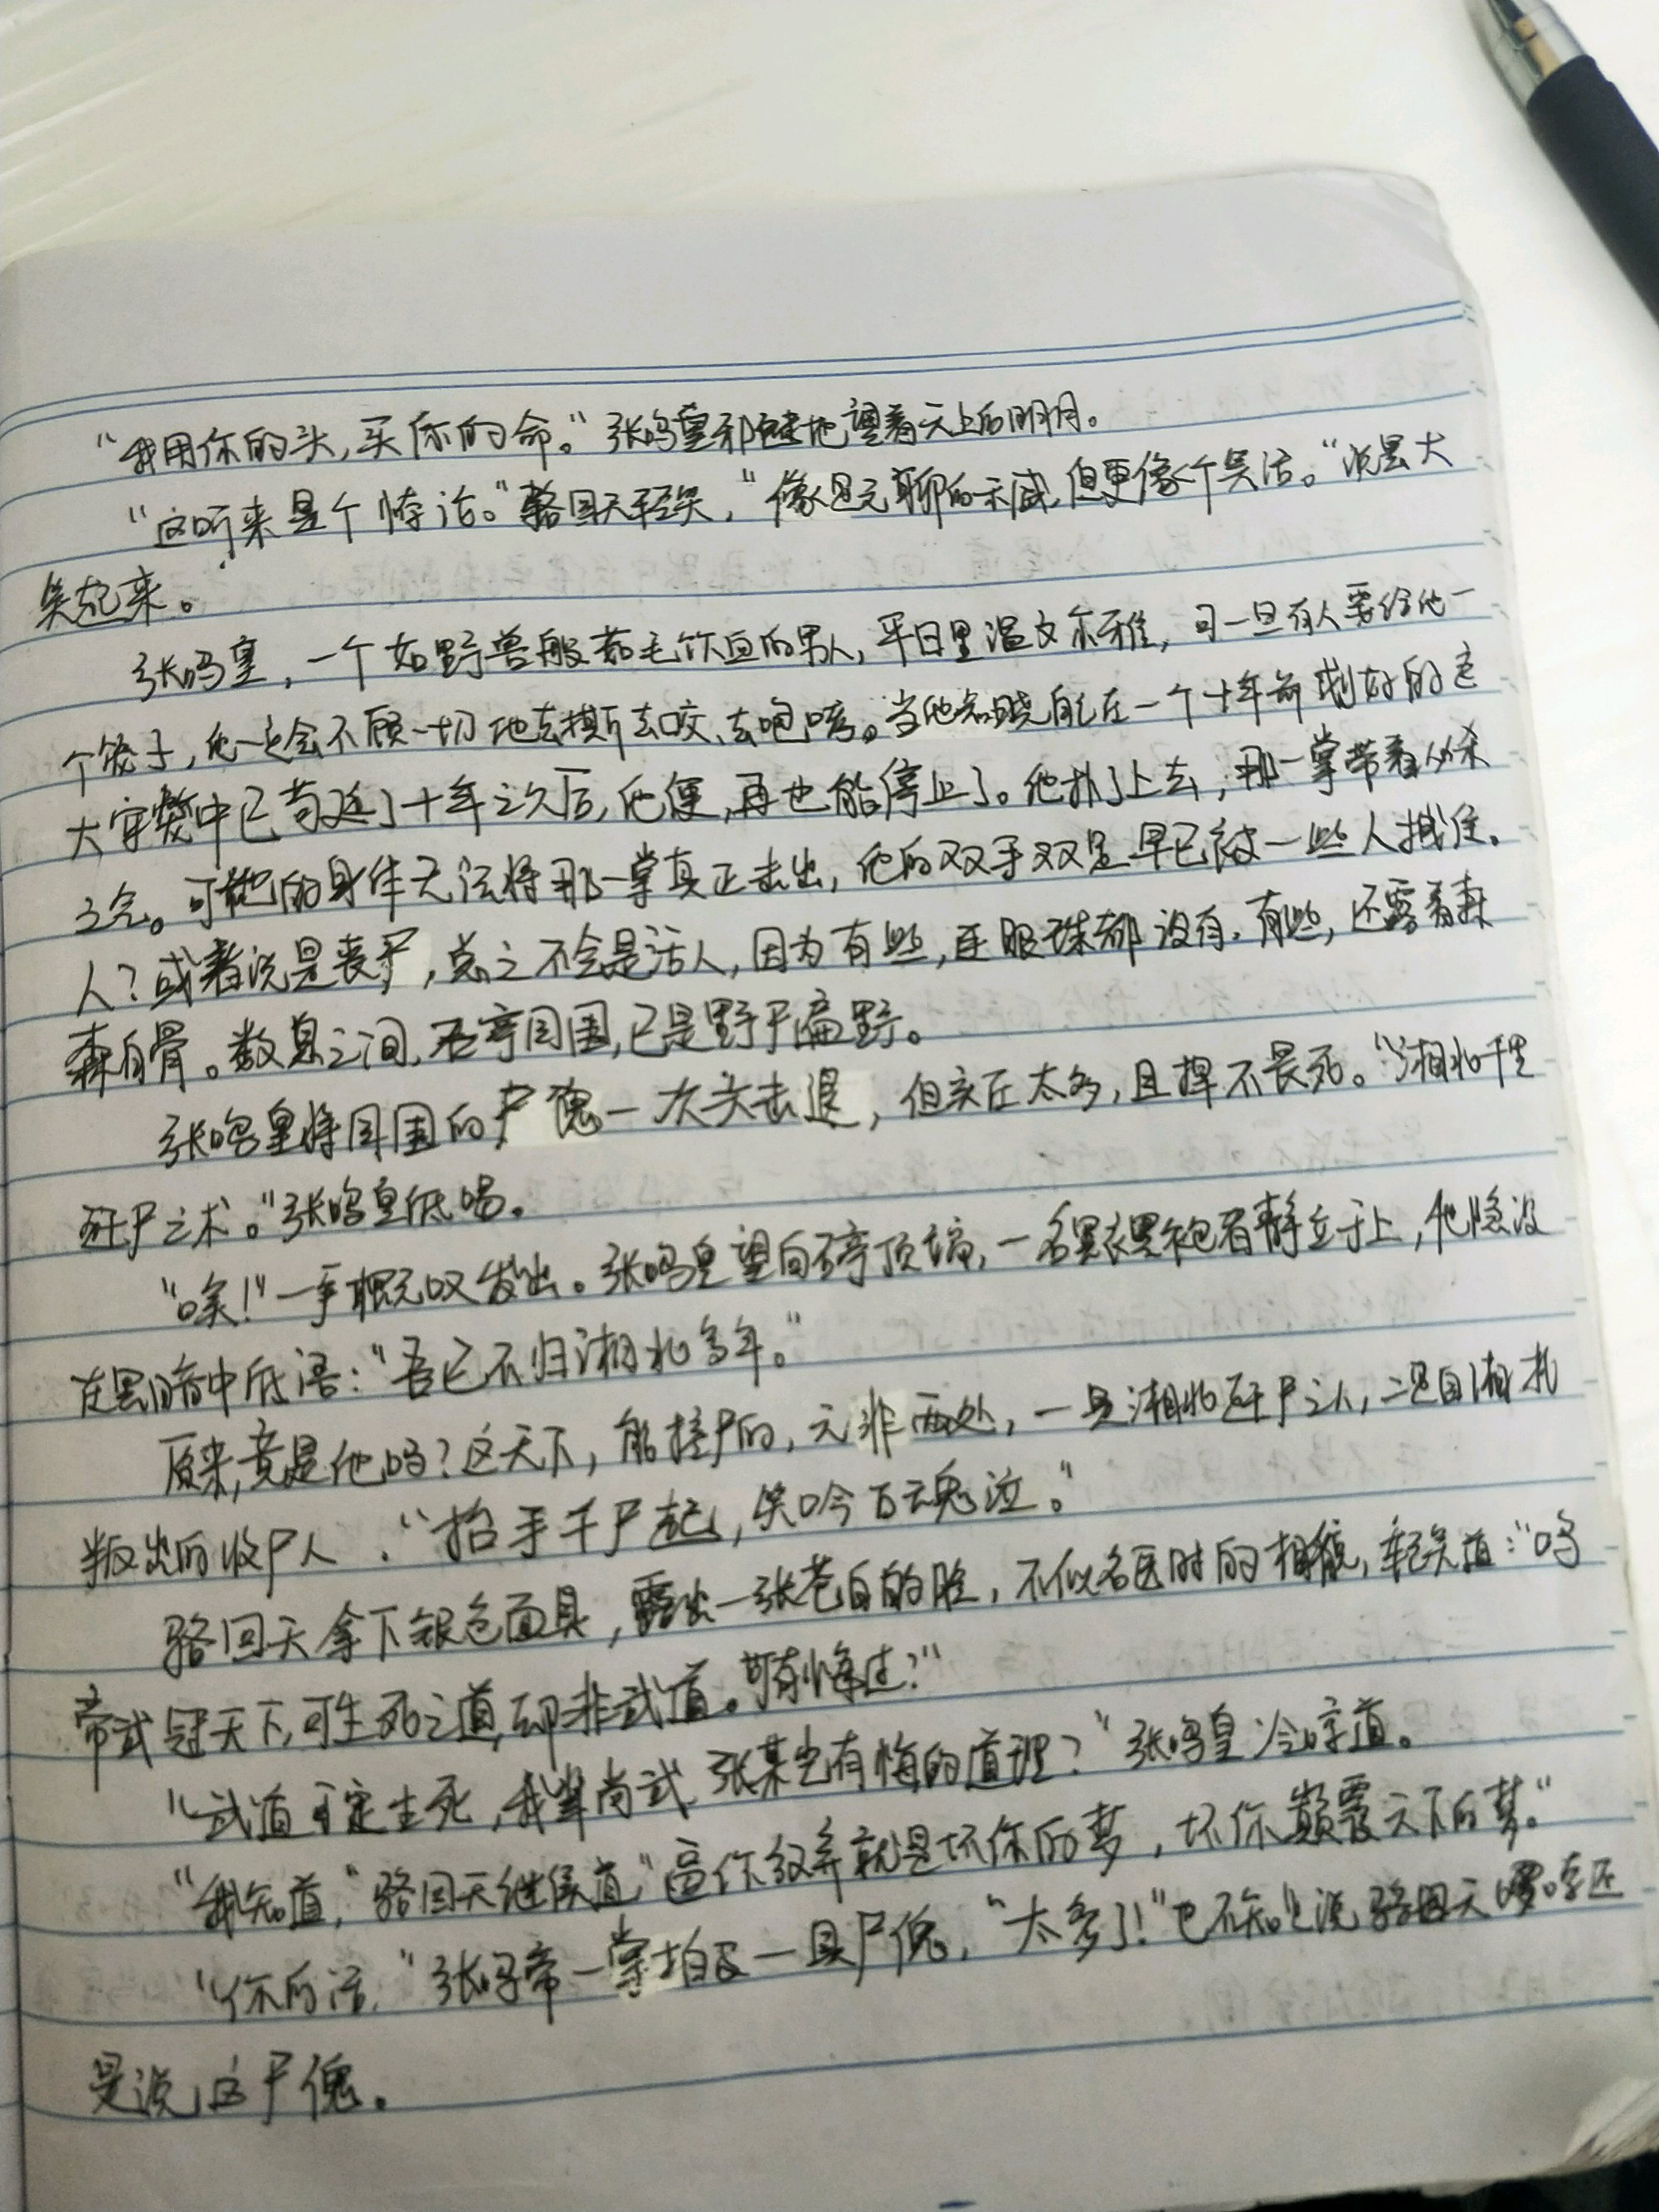 “我用你的头,买你的命。”张鸣皇邪魅地望着天上的明月。
“这听来是个悖论。”骆回天轻笑,“像是无聊的示威,但更像个笑话。”说罢大
笑起来。
张鸣皇,一个如野兽般茹毛饮血的男人,平日里温文尔雅,可一旦有人要给他一
个笼子,他一定会不顾一切地去撕去咬、去咆哮。当他知晓自己在一个十年前划好的这
大牢笼中已苟延了十年之久后,他便,再也能停止了。他扑了上去,那一掌带着必杀
之念。可他的身体无法将那一掌真正击出,他的双手双足早已被一些人拽住。
人?或者说是丧尸,总之不会是活人,因为有些,连眼珠都没有,有些,还露着森
森白骨。数息之间,石亭周围,已是野尸遍野。
张鸣皇将周围的尸傀一次次击退,但实在太多,且悍不畏死。“湘北千里
赶尸之术。”张鸣皇低喝。
“唉!”一声概叹发出。张鸣皇望向石亭顶端,一名黑衣黑袍者静立于上,他隐没
在黑暗中低语:“吾已不归湘北多年。”
原来,竟是他吗?这天下,能控尸的,无非两处,一是湘北赶尸之人,二是自湘北
叛出的收尸人.“抬手千尸起,笑吟百魂泣。”
骆回天拿下银色面具,露出一张苍白的脸,不似名医时的相貌,轻笑道:“鸣
帝武冠天下,可生死之道,却非武道。可有悔过?”
“武道可定生死,我辈尚武,张某岂有悔的道理?”张鸣皇冷哼道。
“我知道,”骆回天继续道“逼你放弃就是坏你的梦,坏你颠覆天下的梦。”
“你的话,”张鸣帝一掌拍飞一具尸傀,“太多了!”也不知是说骆回天啰嗦还
是说这尸傀。